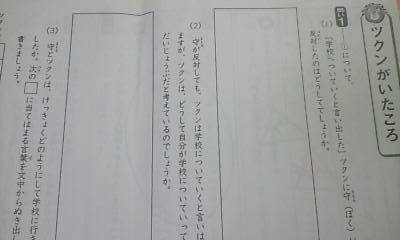 ツクンがいたころ
問い1
(1) 「学校へついていくと言い出した」ツクンに守(ぼく)
①について、
反対したのはどうしてでしょうか。
(2) 守が反対しても、ツクンは学校についていくと言いは
ますが、ツクンは、どうして自分が学校についていって
だいじょうぶだと考えているのでしょうか。
(3) 守とツクンは、けっきょくどのようにして学校に行き
したか。次の□に当てはまる言葉を文中からぬき出
書きましょう。